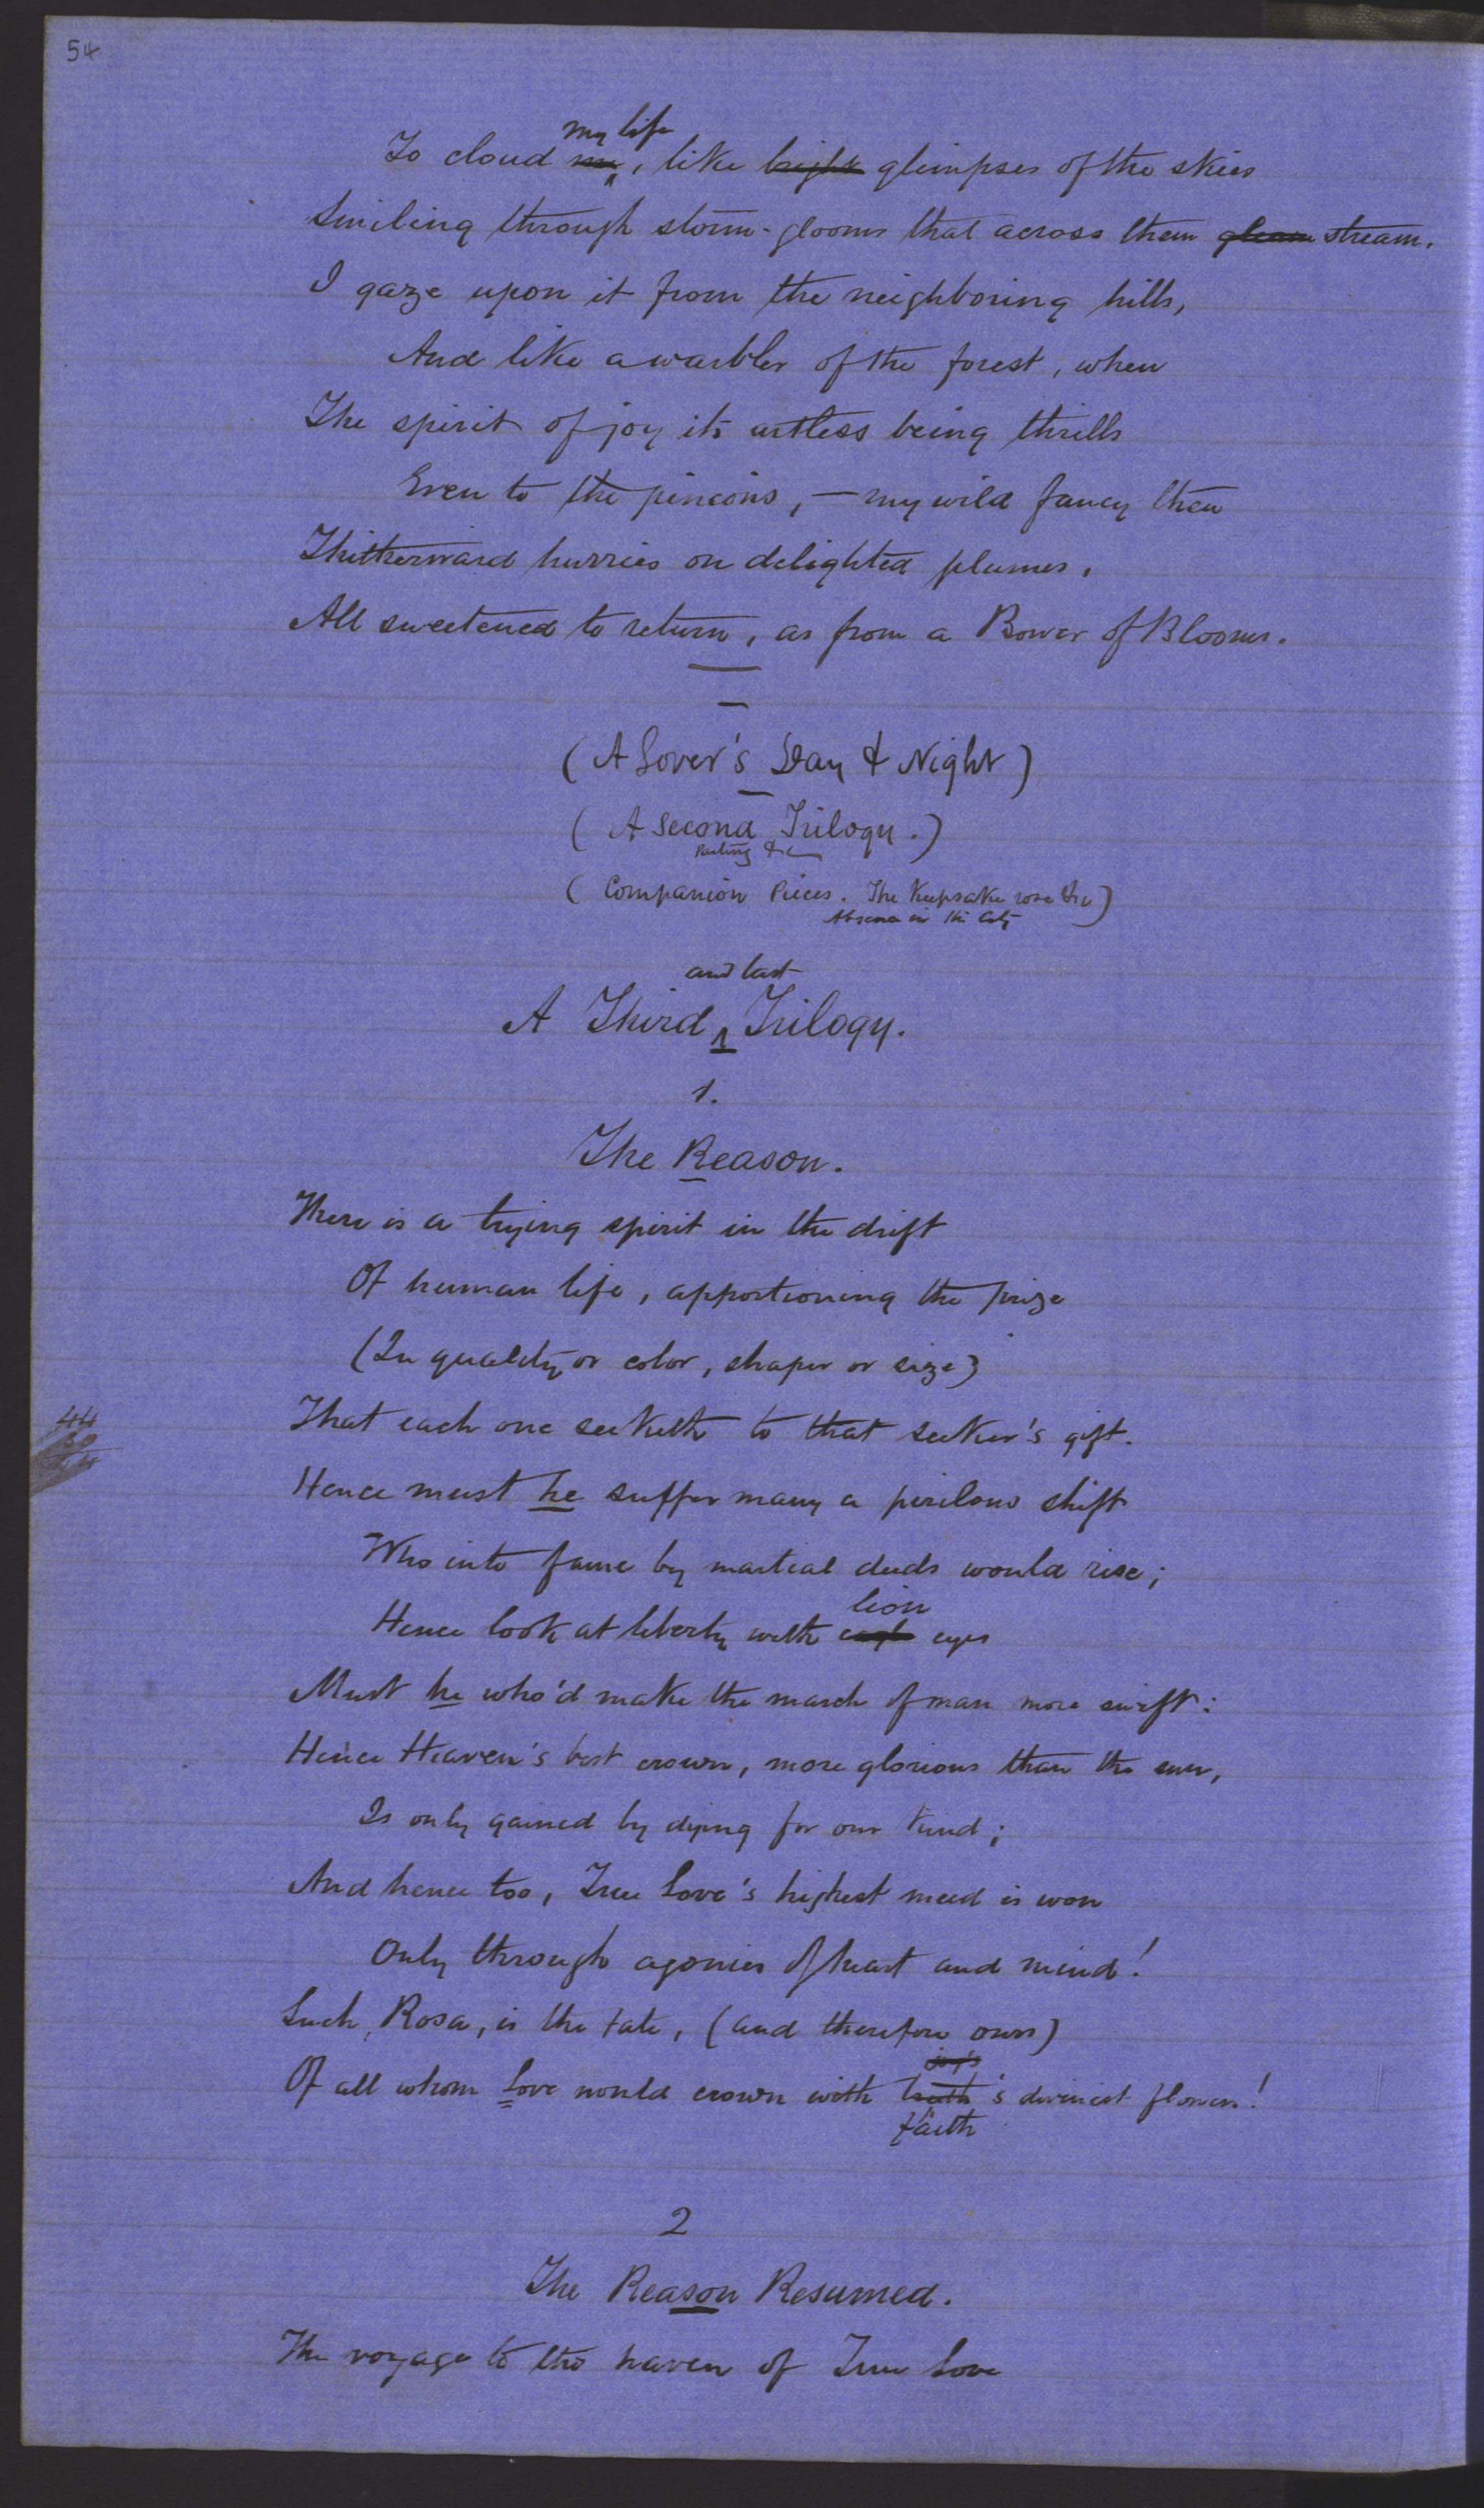 54
my life
To cloud me, like bright glimpses of the skies
Smiling through storm-glooms that across them gleam stream.
I gaze upon it from the neighboring hills,
And like a warbler of the forest, when
The spirit of joy its artless being thrills
Even to the pinions, — my wild fancy then
Thitherward hurries on delighted plumes,
All sweetened to return, as from a Bower of Blooms.
(A Lover's Day & Night)
(A Second Trilogy.)
Parting &c
(Companion Pieces. The Keepsake rose &c)
Absence in the City
and last
A Third Trilogy.
1.
The Reason.
There is a trying spirit in the drift
Of human life, apportioning the prize
(In quality or color, shape or size)
That each one seeketh to that seeker's gift.
44
Hence must he suffer many a perilous shift
Who into fame by martial deeds would rise;
lion
Hence look at liberty with eagle eyes
Must he who'd make the march of man more swift:
Hence Heaven's best crown, more glorious than the sun,
Is only gained by dying for our kind;
And hence too, True Love's highest meed is won
Only through agonies of heart and mind!
Such, Rosa, is the fate, (and therefore ours)
joy's
Of all whom Love would crown with truth's divinest flowers!
faith
2
The Reason Resumed.
The voyage to the haven of True Love